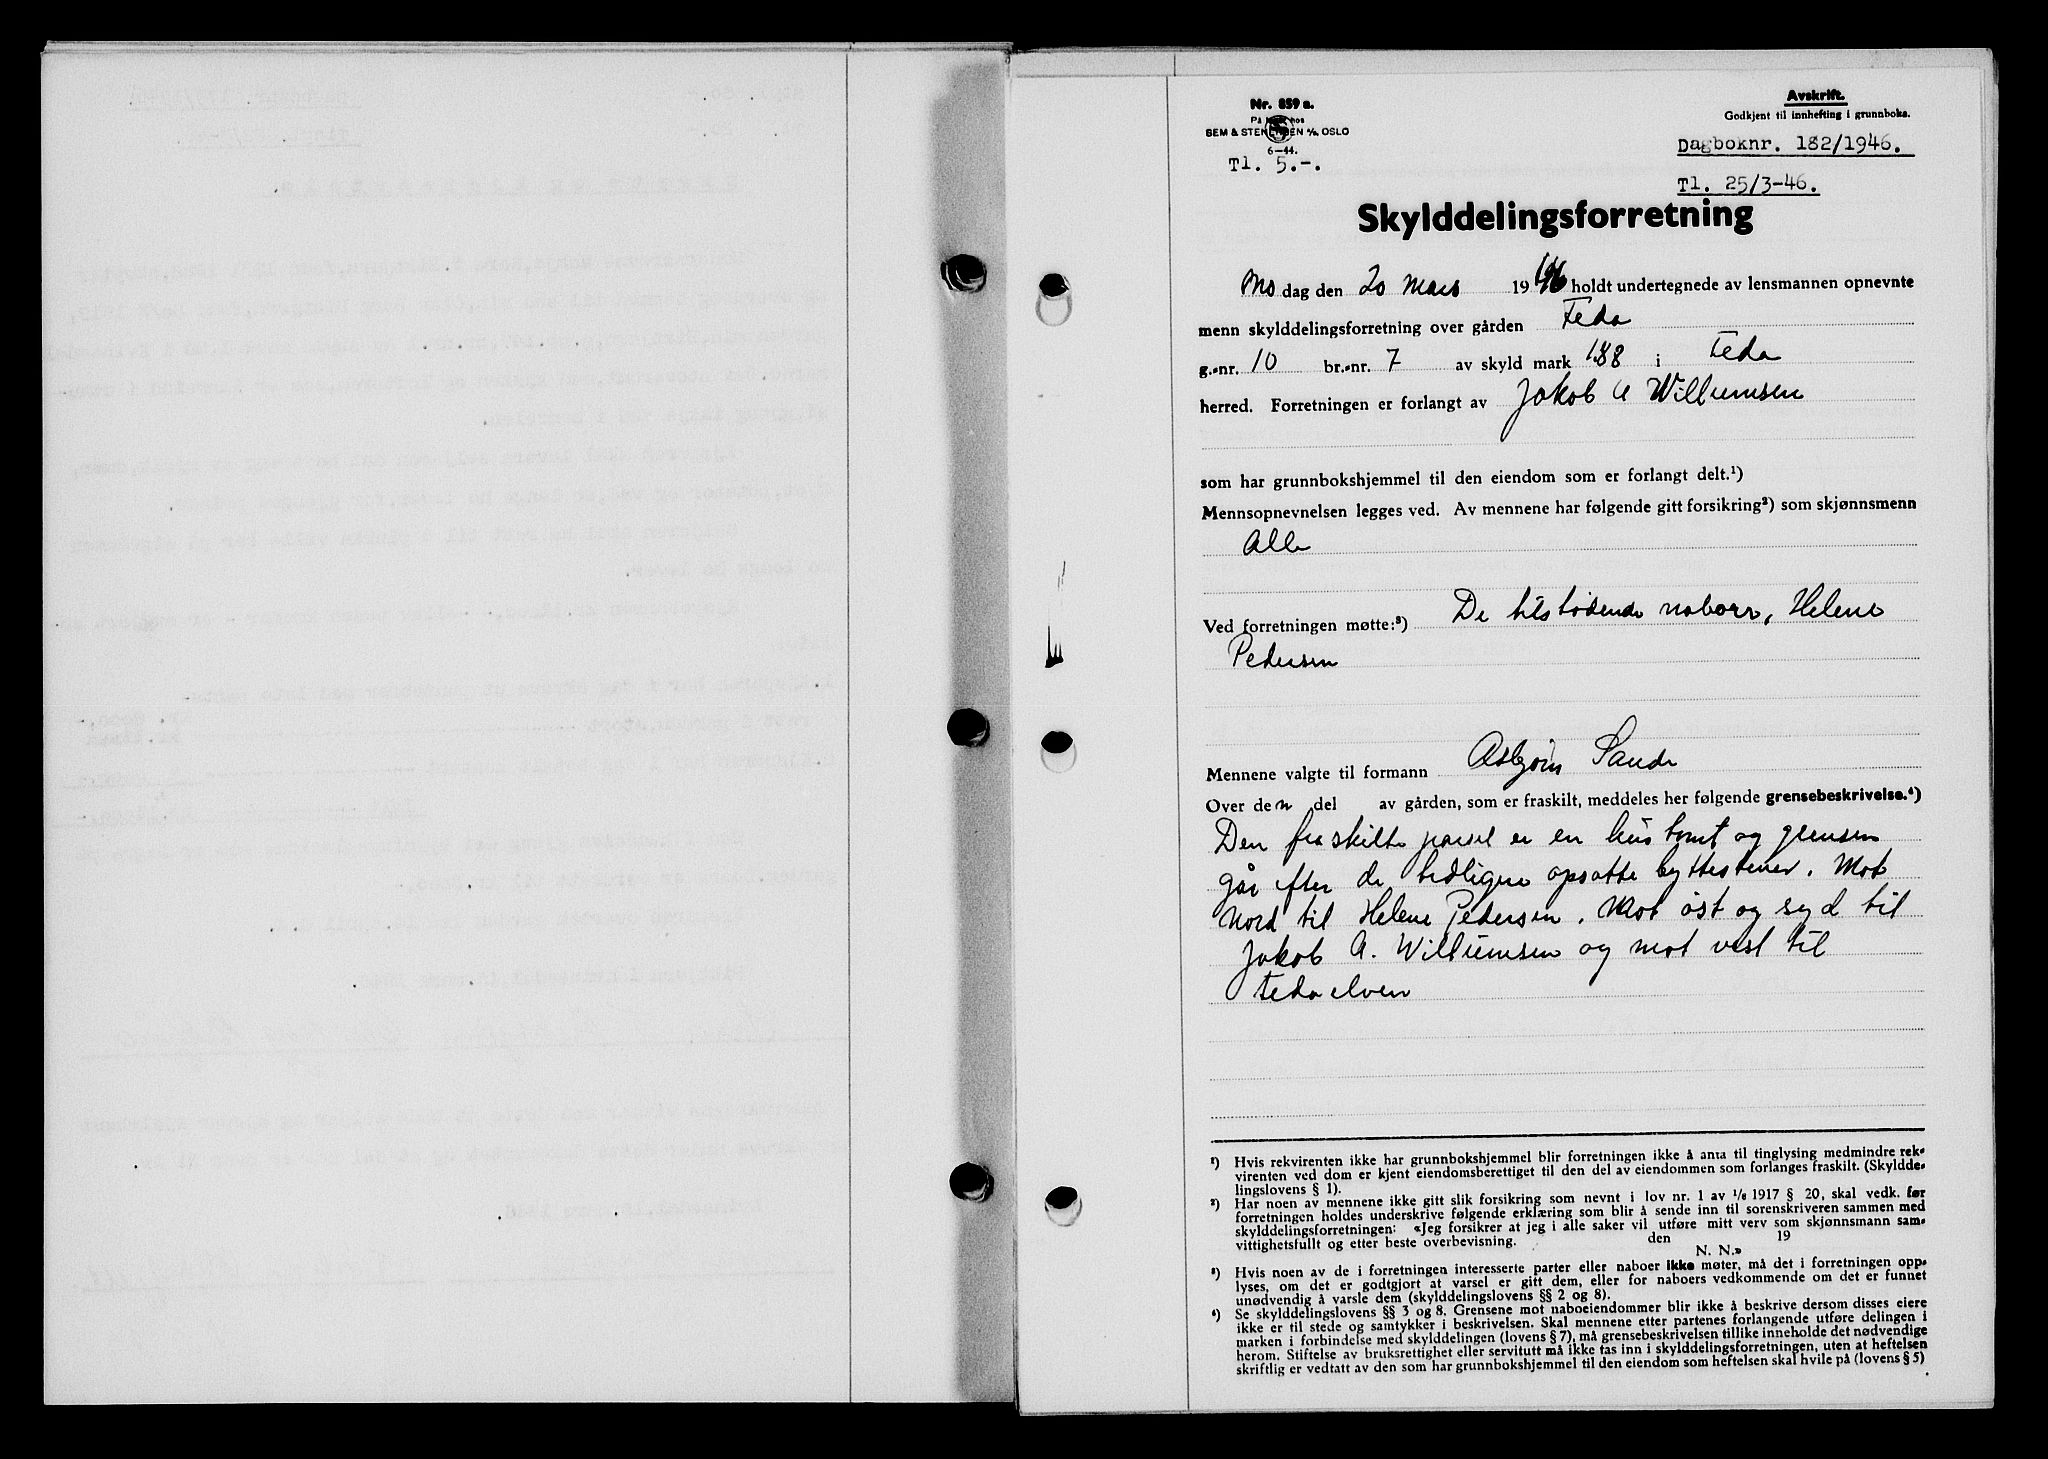 Nr. 859 a.
På lager hos
SEM & STENERSEN A/S, OSLO
6—44.
Tl. 5.-.
Avskrift.
Godkjent til innhefting i grunnboka.
Dagboknr. 182/1946.
Tl. 25/3-46.
Skylddelingsforretning
dag den 20 Mars 1946 holdt undertegnede av lensmannen opnevnte
menn skylddelingsforretning over gården Feda
g.-nr. 10 br.-nr. 7 av skyld mark 1.88 i Feda
herred. Forretningen er forlangt av Jakob A Willumsen
som har grunnbokshjemmel til den eiendom som er forlangt delt.¹)
Mennsopnevnelsen legges ved. Av mennene har følgende gitt forsikring²) som skjønnsmenn
Alle
Ved forretningen møtte:³) De tilstødende naboer, Helene
Pedersen
Mennene valgte til formann Asbjørn Sande
Over den del av gården, som er fraskilt, meddeles her følgende grensebeskrivelse.⁴)
Den fraskilte parsel er en hus tomt og grensen
går efter de tydligere opsatte byttestener. Mot
Nord til Helene Pedersen. Mot øst og syd til
Jakob A. Willumsen og mot vest til
Feda elven
¹) Hvis rekvirenten ikke har grunnbokshjemmel blir forretningen ikke å anta til tinglysing medmindre rek-
virenten ved dom er kjent eiendomsberettiget til den del av eiendommen som forlanges fraskilt. (Skyldde-
lingslovens § 1).
²) Har noen av mennene ikke gitt slik forsikring som nevnt i lov nr. 1 av 1/6 1917 § 20, skal vedk. før
forretningen holdes underskrive følgende erklæring som blir å sende inn til sorenskriveren sammen med
skylddelingsforretningen: «Jeg forsikrer at jeg i alle saker vil utføre mitt verv som skjønnsmann sam-
vittighetsfullt og etter beste overbevisning. den 19
N. N.»
³) Hvis noen av de i forretningen interesserte parter eller naboer ikke møter, må det i forretningen opp-
lyses, om det er godtgjort at varsel er gitt dem, eller for naboers vedkommende om det er funnet
unødvendig å varsle dem (skylddelingslovens §§ 2 og 8).
⁴) Se skylddelingslovens §§ 3 og 8. Grensene mot naboeiendommer blir ikke å beskrive dersom disses eiere
ikke er til stede og samtykker i beskrivelsen. Skal mennene etter partenes forlangende utføre delingen i
marken i forbindelse med skylddelingen (lovens § 7), må grensebeskrivelsen tillike inneholde det nødvendige
herom. Stiftelse av bruksrettighet eller servitutt må ikke tas inn i skylddelingsforretningen, uten at heftelsen
skriftlig er vedtatt av den som har grunnbokshjemmel til den eiendom som heftelsen skal hvile på (lovens § 5)